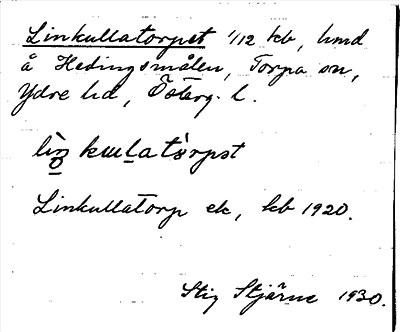 Linkullatorpet 1/12 kb, hmd
å Hedingsmålen, Torpa sn,
Ydre hd, Österg. l.
Linkullatorp ek, kb 1920.
Stig Stjärne 1930.